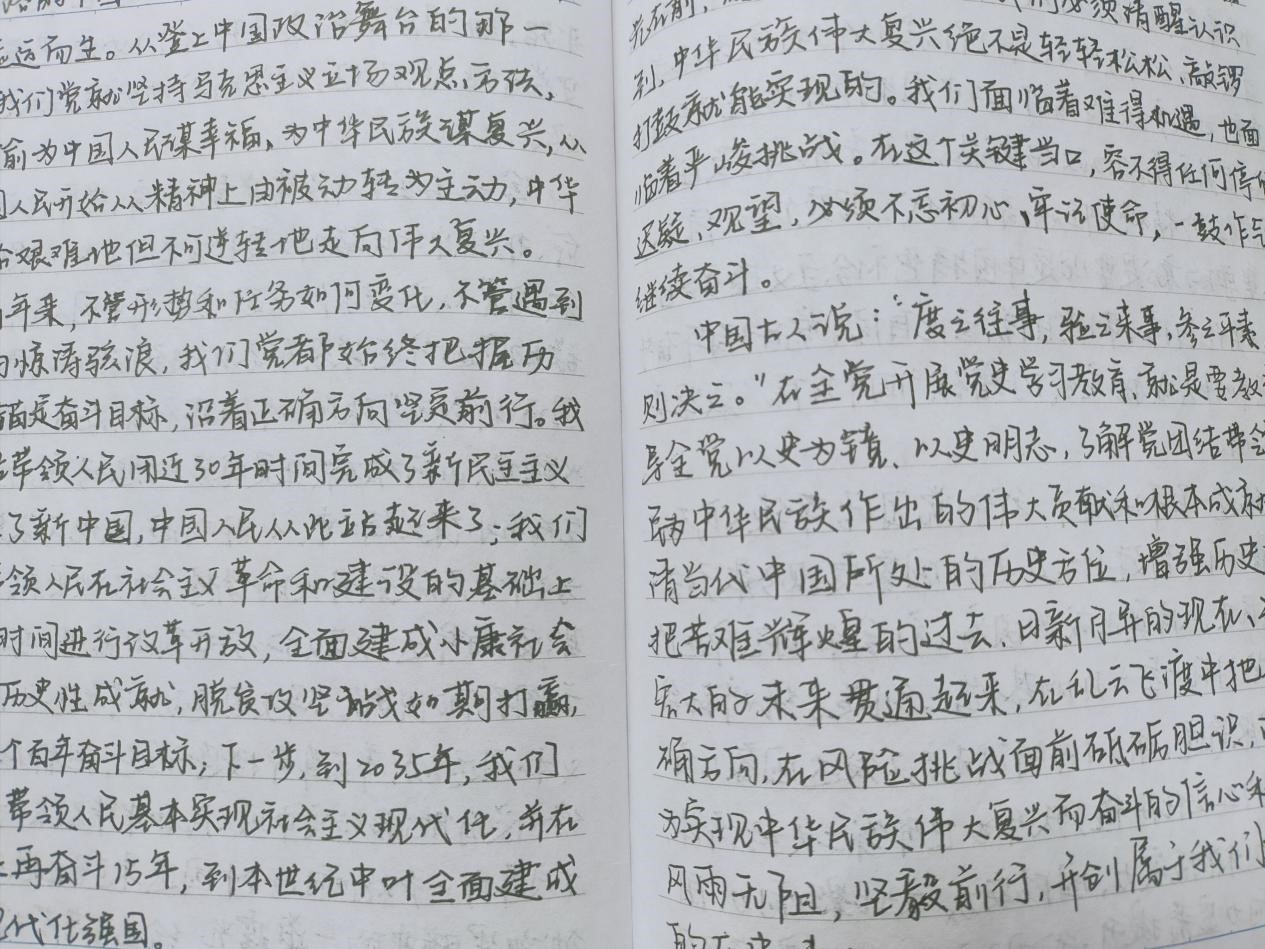 运而生。从登上中国政治舞台的那一
我们党就坚持马克思主义立场观点方法,
前为中国人民谋幸福、为中华民族谋复兴,从
国人民开始从精神上由被动转为主动,中华
艰难地但不可逆转地走向伟大复兴。
年来,不管形势和任务如何变化,不管遇到
惊涛骇浪,我们党都始终把握历
锚定奋斗目标,沿着正确方向坚定前行。我
带领人民用近30年时间完成了新民主主义
了新中国,中国人民从此站起来了;我们
领人民在社会主义革命和建设的基础上
时间进行改革开放,全面建成小康社会
历史性成就,脱贫攻坚战如期打赢,
个百年奋斗目标;下一步,到2035年,我们
带领人民基本实现社会主义现代化,并在
再奋斗15年,到本世纪中叶全面建成
代化强国。
在前,
们必须清醒认识
到,中华民族伟大复兴绝不是轻轻松松、敲锣
打鼓就能实现的。我们面临着难得机遇,也面
临着严峻挑战。在这个关键当口,容不得任何停
迟疑、观望,必须不忘初心、牢记使命,一鼓作气
继续奋斗。
中国古人说:“度之往事,验之来事,参之平素
则决之。”在全党开展党史学习教育,就是要教
导全党以史为镜、以史明志,了解党团结带领
民为中华民族作出的伟大贡献和根本成就
清当代中国所处的历史方位,增强历史
把苦难辉煌的过去、日新月异的现在、
宏大的未来贯通起来,在乱云飞渡中把
确方向,在风险挑战面前砥砺胆识,
为实现中华民族伟大复兴而奋斗的信心和
风雨无阻,坚毅前行,开创属于我们
的